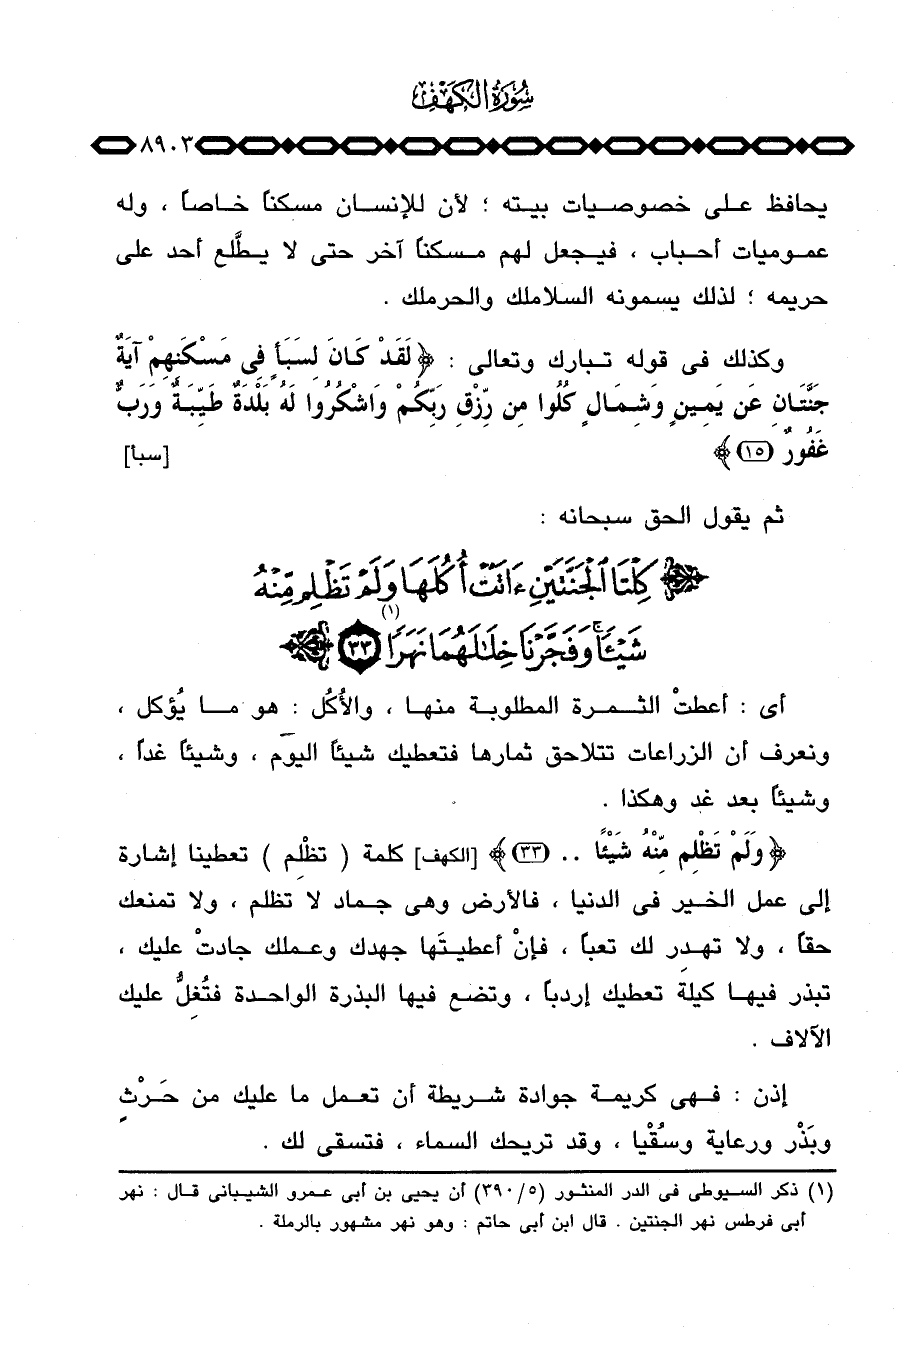 سُورَةُ الكَهْفِ
٨٩٠٣
يحافظ على خصوصيات بيته ؛ لأن للإنسان مسكناً خاصاً ، وله
عموميات أحباب ، فيجعل لهم مسكناً آخر حتى لا يطَّلع أحد على
حريمه ؛ لذلك يسمونه السلاملك والحرملك .
وكذلك فى قوله تبارك وتعالى : ﴿لَقَدْ كَانَ لِسَبَأٍ فِى مَسْكَنِهِمْ آيَةٌ
جَنَّتَانِ عَن يَمِينٍ وَشِمَالٍ كُلُوا مِن رِّزْقِ رَبِّكُمْ وَاشْكُرُوا لَهُ بَلْدَةٌ طَيِّبَةٌ وَرَبٌّ
غَفُورٌ (١٥)﴾ [سبأ]
ثم يقول الحق سبحانه :
﴿كِلْتَا ٱلْجَنَّتَيْنِ ءَاتَتْ أُكُلَهَا وَلَمْ تَظْلِم مِّنْهُ
شَيْـًٔا ۚ وَفَجَّرْنَا خِلَـٰلَهُمَا نَهَرًا (١) (٣٣)﴾
أى : أعطتْ الثمرة المطلوبة منها ، والأُكُل : هو ما يُؤكل ،
ونعرف أن الزراعات تتلاحق ثمارها فتعطيك شيئاً اليوم ، وشيئاً غداً ،
وشيئاً بعد غد وهكذا .
﴿وَلَمْ تَظْلِم مِّنْهُ شَيْئًا .. (٣٣)﴾ [الكهف] كلمة ( تظْلِم ) تعطينا إشارة
إلى عمل الخير فى الدنيا ، فالأرض وهى جماد لا تظلم ، ولا تمنعك
حقاً ، ولا تهدر لك تعباً ، فإنْ أعطيتَها جهدك وعملك جادتْ عليك ،
تبذر فيها كيلة تعطيك إردباً ، وتضع فيها البذرة الواحدة فتُغِلُّ عليك
الآلاف .
إذن : فهى كريمة جوادة شريطة أن تعمل ما عليك من حَرْثٍ
وبَذْرٍ ورعاية وسُقْيا ، وقد تريحك السماء ، فتسقى لك .
(١) ذكر السيوطى فى الدر المنثور (٣٩٠/٥) أن يحيى بن أبى عمرو الشيبانى قال : نهر
أبى فرطس نهر الجنتين . قال ابن أبى حاتم : وهو نهر مشهور بالرملة .